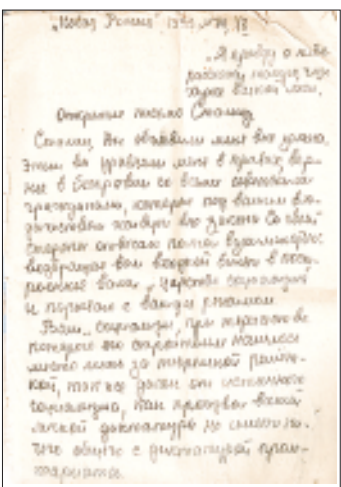 „Новая Россия" 1939
„Я правду о тебе
порасскажу такую, что
хуже всякой лжи.
Открытое письмо Сталину
Сталин, Вы объявили меня вне закона.
Этим вы уравняли меня в правах, вер-
нее в бесправии со всеми советскими
гражданами, которые под вашим вла-
дычеством живут вне закона. Со своей
стороны отвечаю полной взаимностью:
возвращаю вам входной билет в пост-
роенное вами „царство социализма"
и порываю с вашим режимом.
Ваш „социализм", при торжестве
которого его строителям нашлось
место лишь за тюремной решёт-
кой, так же далек от истинного
социализма, как произвол вашей
личной диктатуры не имеет ни-
чего общего с диктатурой проле-
тариата.